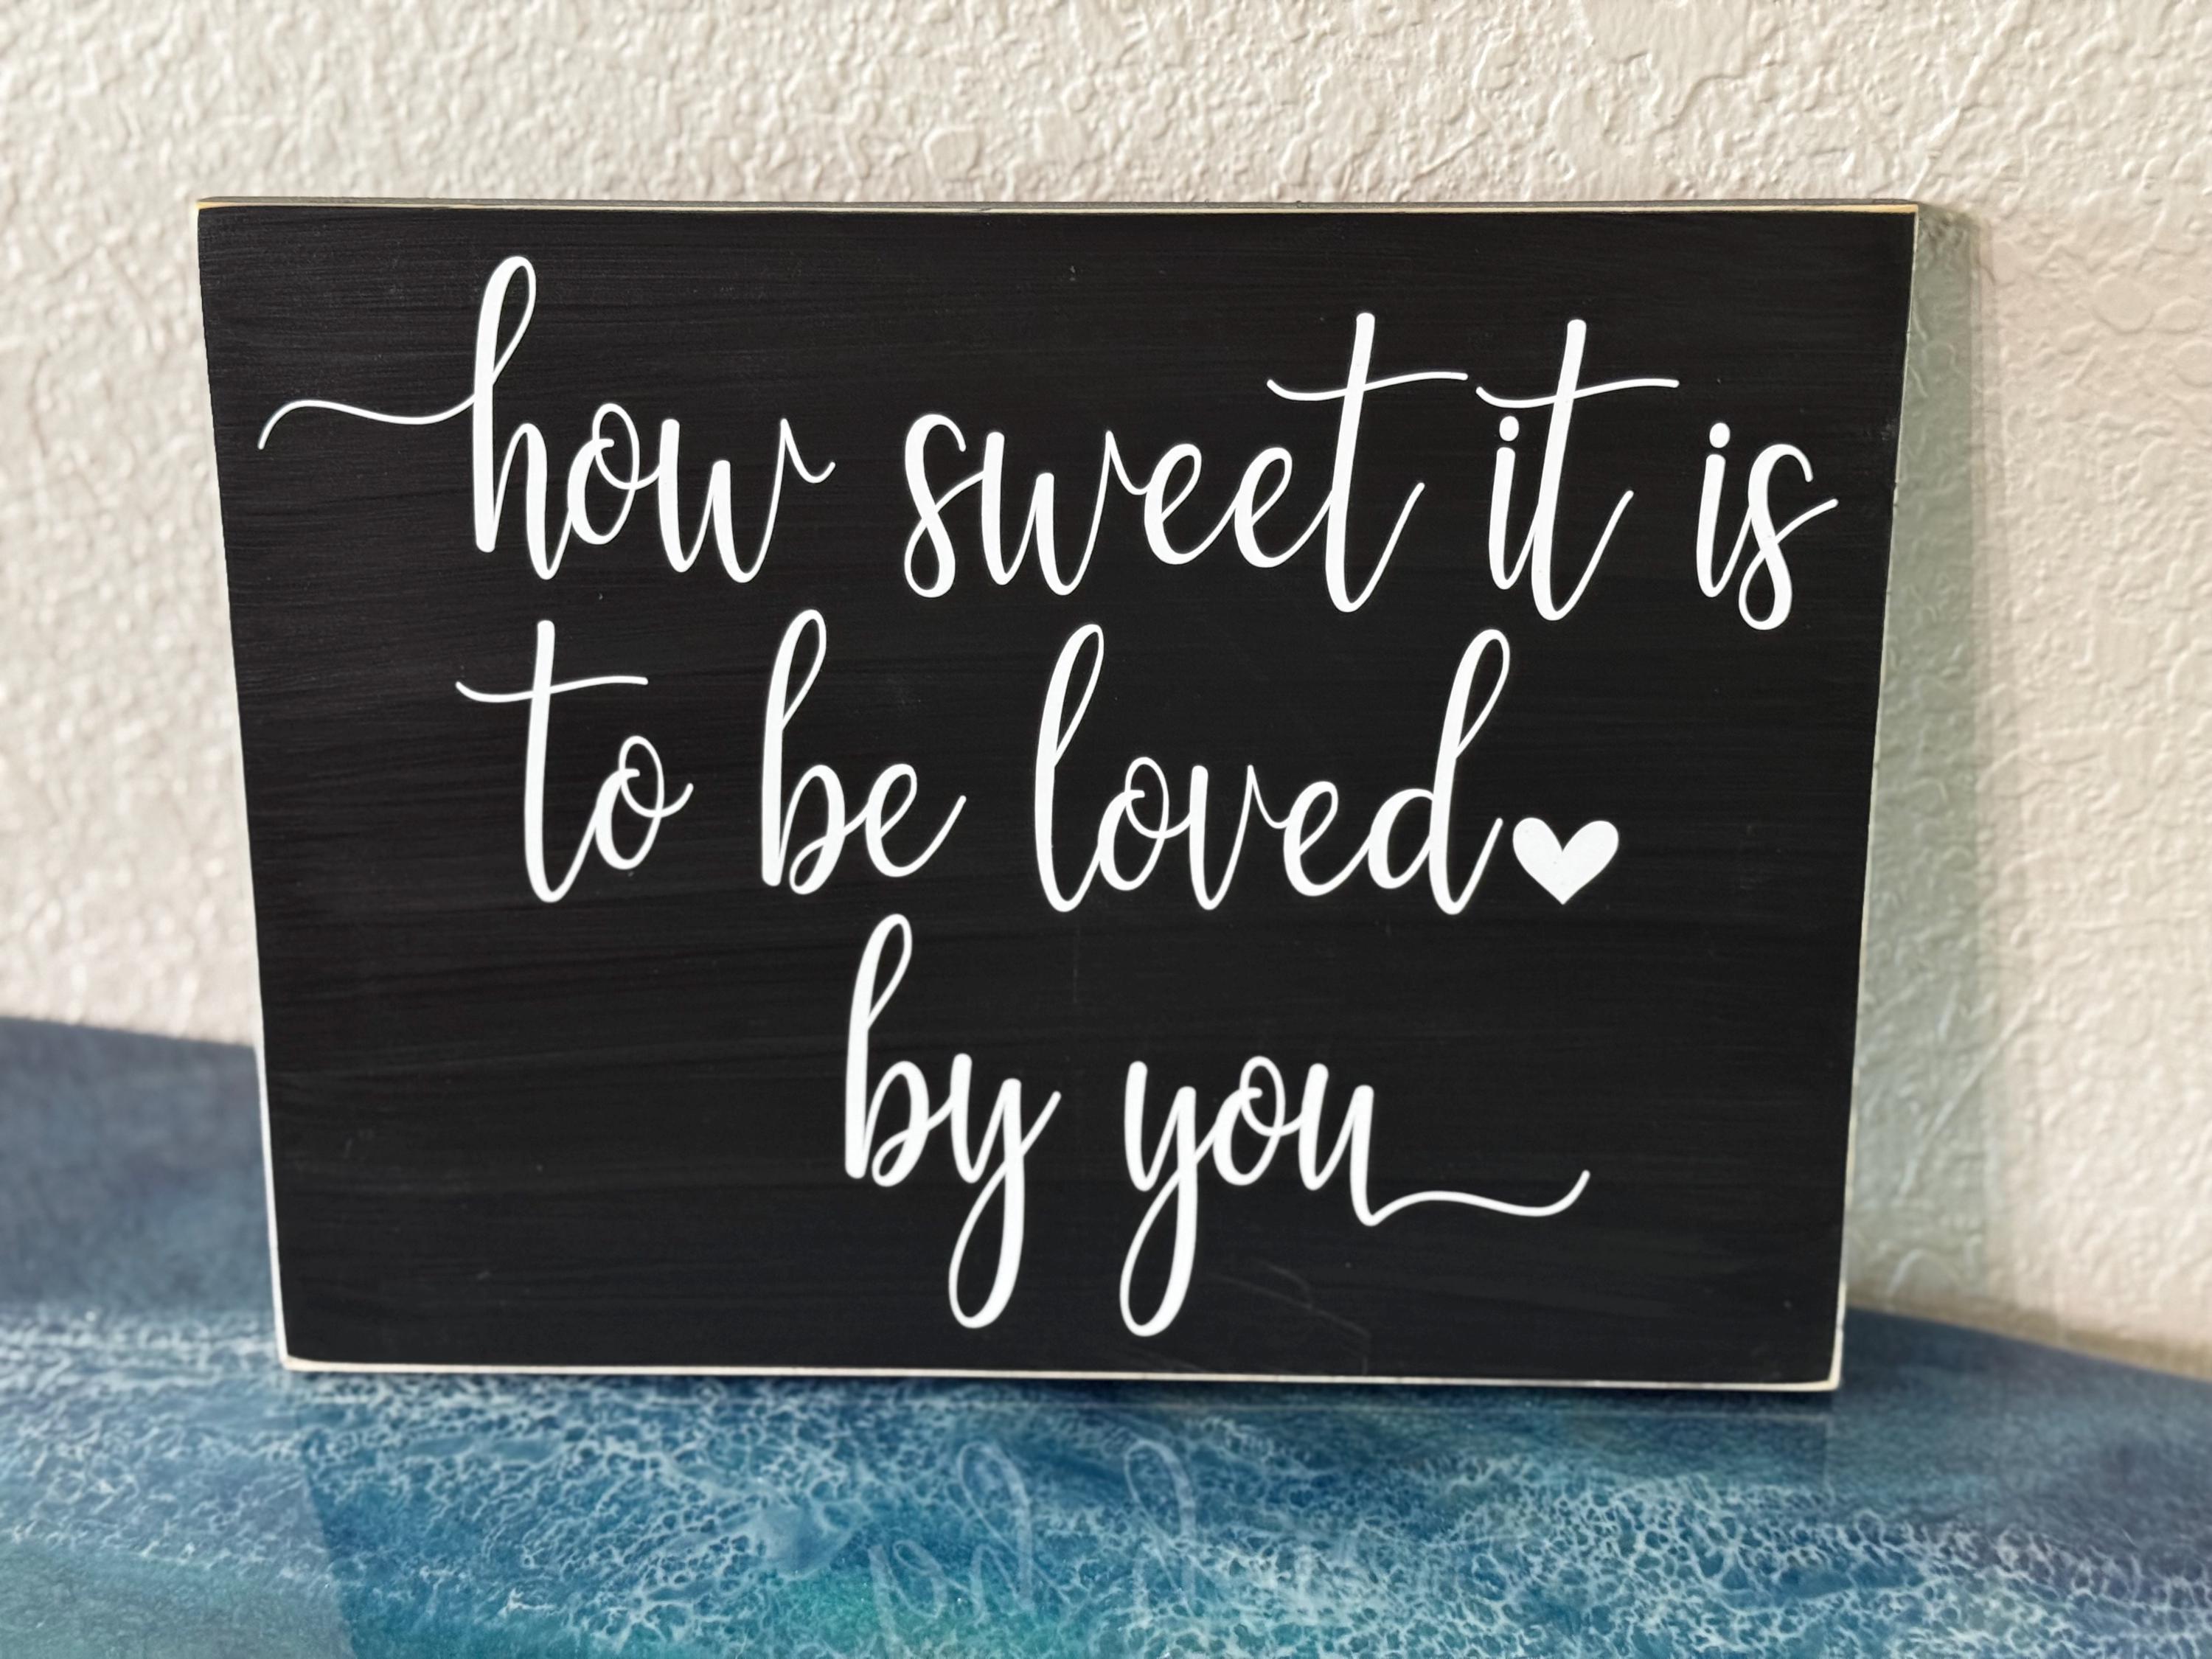 how sweet it is
to be loved♥
by you